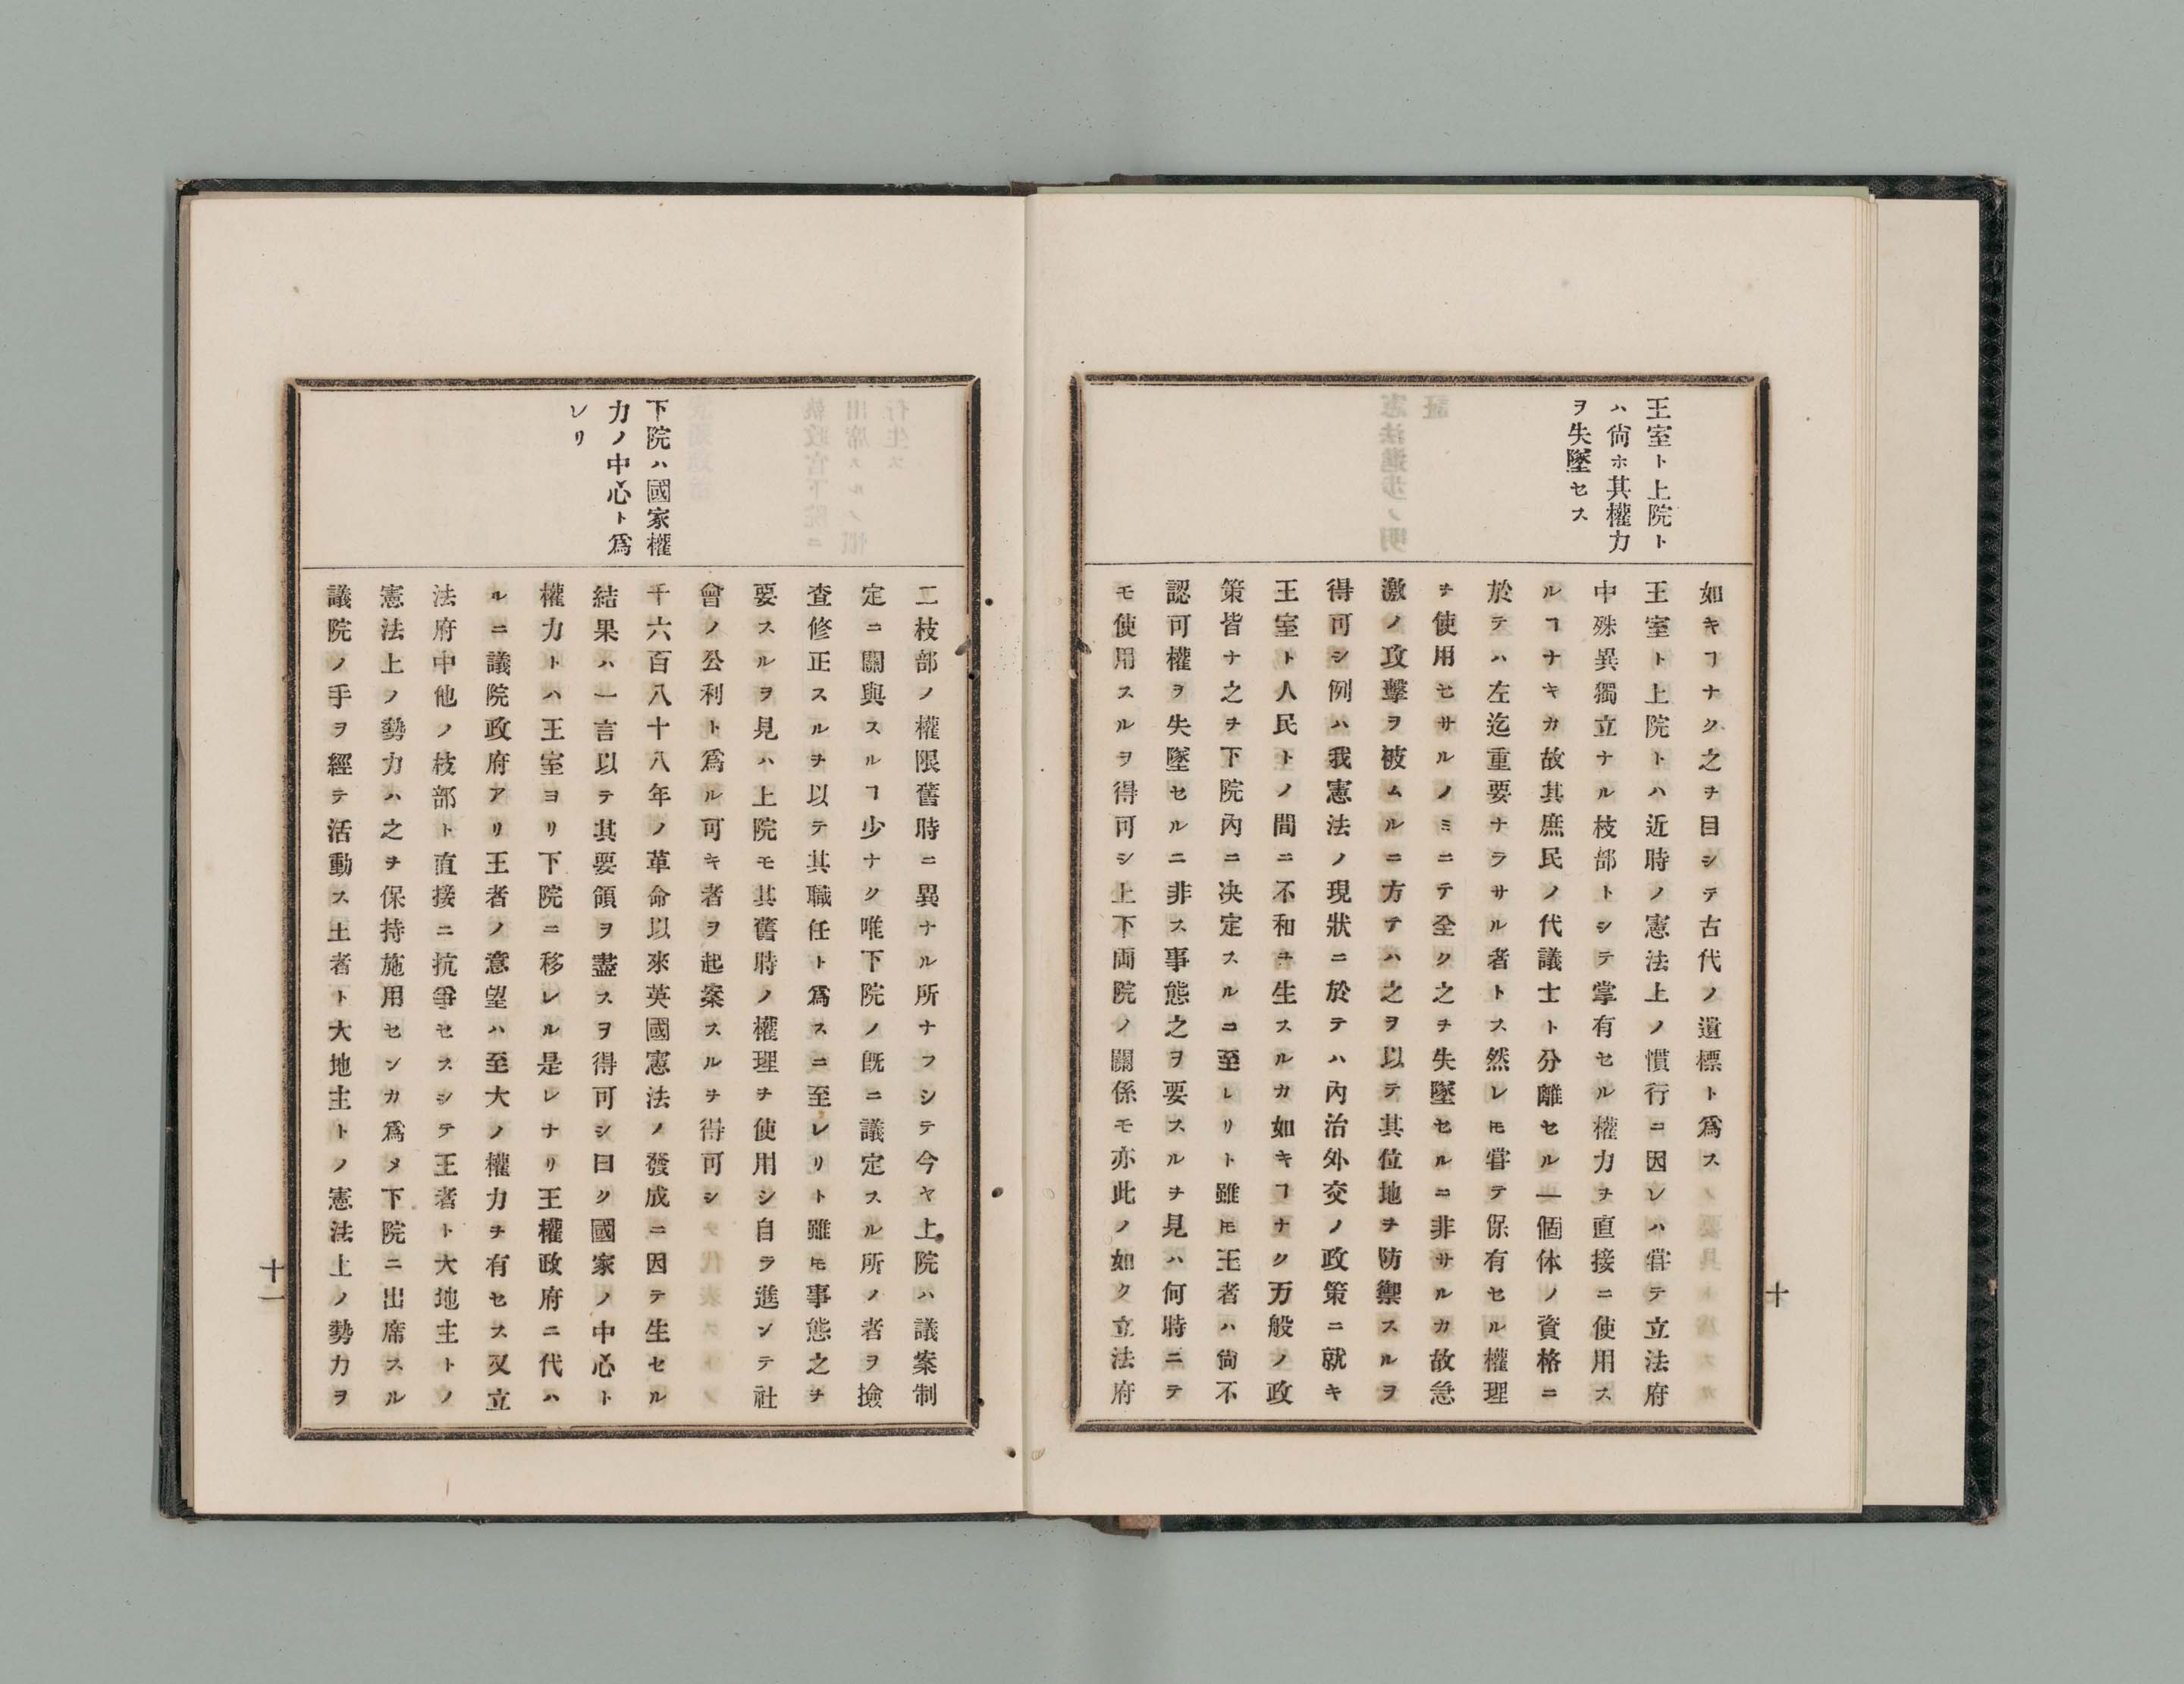 王室ト上院ト
ハ尙ホ其權力
ヲ失墜セス
如キヿナク之ヲ目シテ古代ノ遺標ト爲ス
王室ト上院トハ近時ノ憲法上ノ慣行ニ因レハ甞テ立法府
中殊異獨立ナル枝部トシテ掌有セル權力ヲ直接ニ使用ス
ルヿナキカ故其庶民ノ代議士ト分離セル一個体ノ資格ニ
於テハ左迄重要ナラサル者トス然レ𪜈甞テ保有セル權理
ヲ使用セサルノミニテ全ク之ヲ失墜セルニ非サルカ故急
激ノ攻擊ヲ被ムルニ方テハ之ヲ以テ其位地ヲ防禦スルヲ
得可シ例ハ我憲法ノ現狀ニ於テハ內治外交ノ政策ニ就キ
王室ト人民トノ間ニ不和ヲ生スルカ如キヿナク万般ノ政
策皆ナ之ヲ下院內ニ决定スルニ至レリト雖𪜈王者ハ尙不
認可權ヲ失墜セルニ非ス事態之ヲ要スルヲ見ハ何時ニテ
モ使用スルヲ得可シ上下両院ノ關係モ亦此ノ如ク立法府
十
下院ハ國家權
力ノ中心ト爲
レリ
二枝部ノ權限舊時ニ異ナル所ナフシテ今ヤ上院ハ議案制
定ニ關與スルヿ少ナク唯下院ノ既ニ議定スル所ノ者ヲ撿
查修正スルヲ以テ其職任ト爲スニ至レリト雖𪜈事態之ヲ
要スルヲ見ハ上院モ其舊時ノ權理ヲ使用シ自ラ進ンテ社
會ノ公利ト爲ル可キ者ヲ起案スルヲ得可シ
千六百八十八年ノ革命以來英國憲法ノ發成ニ因テ生セル
結果ハ一言以テ其要領ヲ盡スヲ得可シ曰ク國家ノ中心ト
權力トハ王室ヨリ下院ニ移レル是レナリ王權政府ニ代ハ
ルニ議院政府アリ王者ノ意望ハ至大ノ權力ヲ有セス又立
法府中他ノ枝部ト直接ニ抗爭セスシテ王者ト大地主トノ
憲法上ノ勢力ハ之ヲ保持施用センカ爲メ下院ニ出席スル
議院ノ手ヲ經テ活動ス王者ト大地主トノ憲法上ノ勢力ヲ
十一